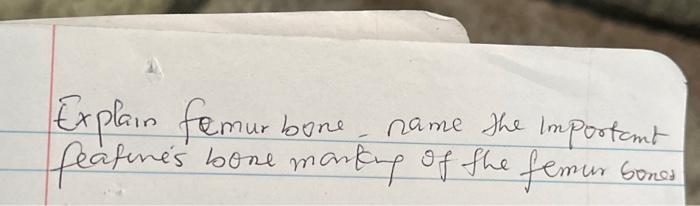 Explain femur bone - name the Important
feature's bone marking of the femur bones